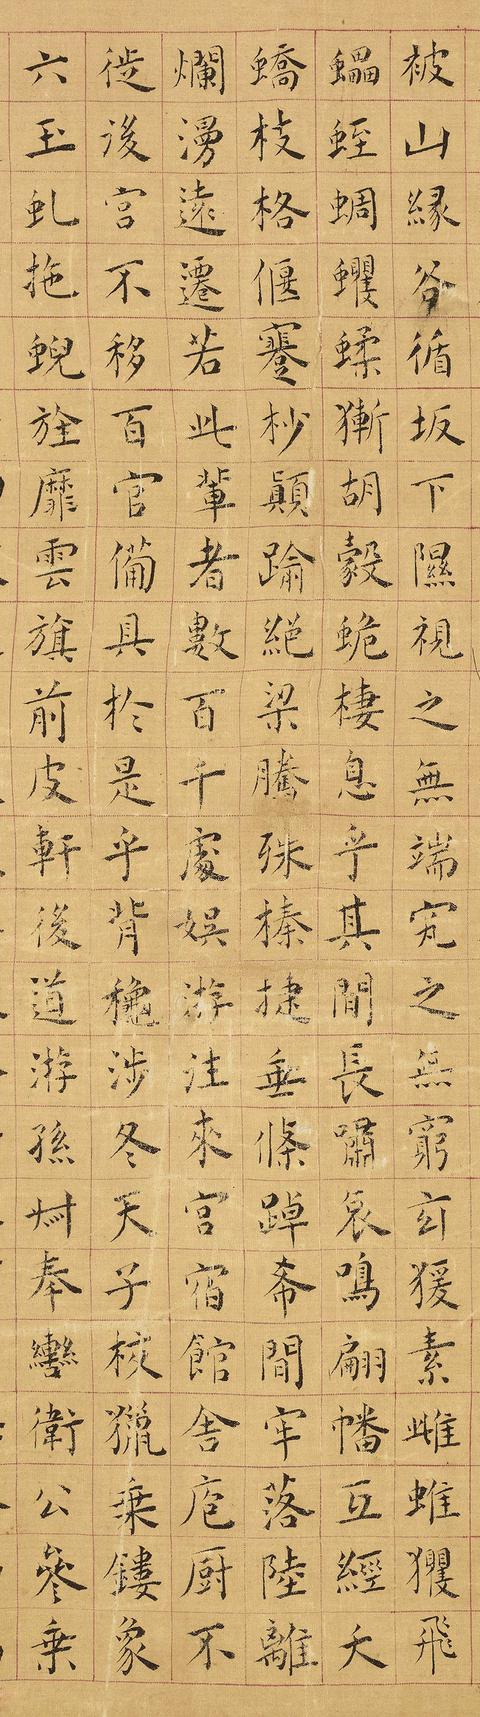 被山緣谷循坂下隰視之無端究之無窮玄猨素雌蜼玃飛
蠝蛭蜩蠼蝚獑胡豰蛫棲息乎其間長嘯哀鳴翩幡互經夭
蟜枝格偃蹇杪顛踰絕梁騰殊榛捷垂條踔希間牢落陸離
爛漫遠遷若此輩者數百千處娛游往來宮宿館舍庖厨不
徙後宮不移百官備具於是乎背穐涉冬天子校獵乗鏤象
六玉虬拖蜺旌靡雲旗前皮軒後道游孫叔奉轡衛公參乗